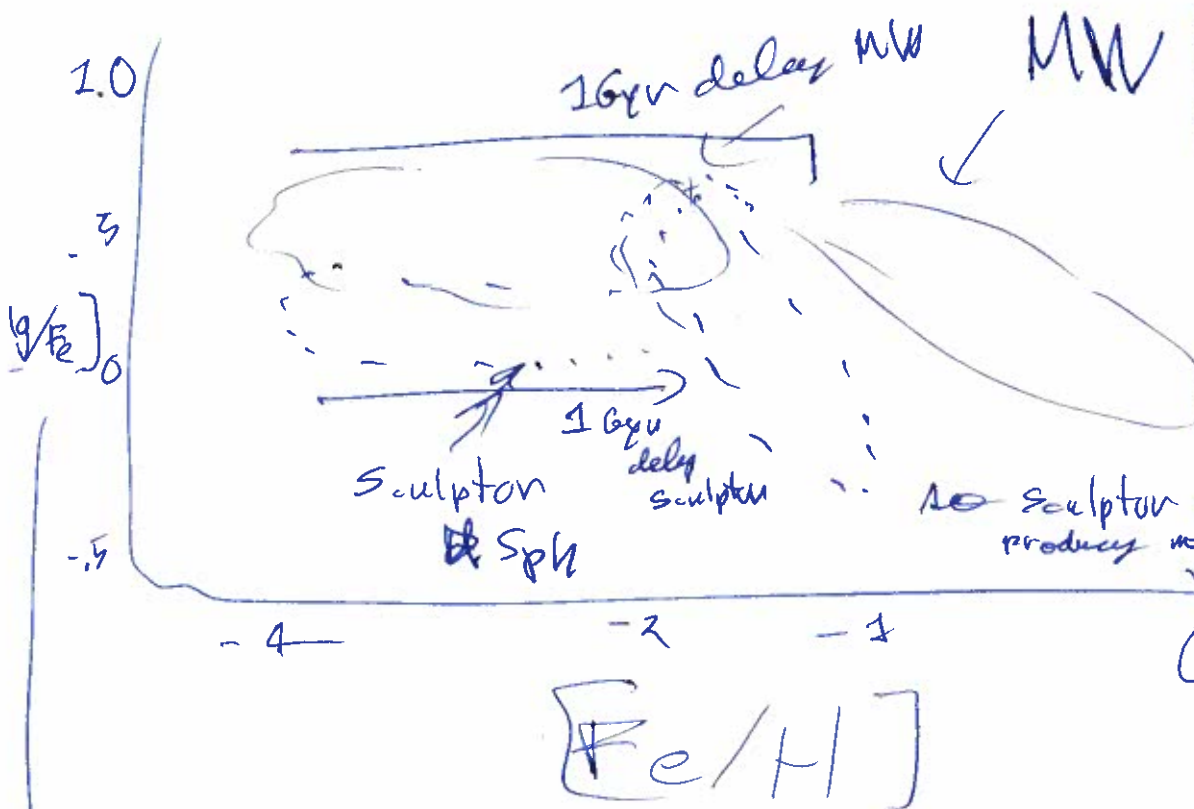 1.0
1Gyr delay MW
MW
.5
/Fe]
0
1 Gyr
delay
sculptor
Sculptor
Sph
Sculptor
-.5
-4
-2
-1
[Fe/H]